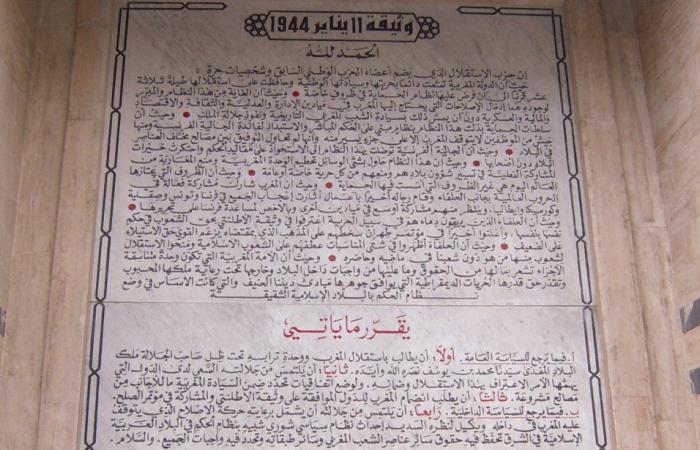 وثيقة 11 يناير 1944
الحمد لله
إن حزب الاستقلال الذي يضم أعضاء الحزب الوطني السابق وشخصيات حرة
حيث أن الدولة المغربية تمتعت دائما بحريتها وسيادتها الوطنية وحافظت على استقلالها طيلة ثلاثة
عشر قرنا إلى أن فرض عليها نظام الحماية في ظروف خاصة • وحيث أن الغاية من هذا النظام والمبرر
لوجوده هما إدخال الإصلاحات التي يحتاج إليها المغرب في ميادين الإدارة والعدلية والثقافة والاقتصاد
والمالية والعسكرية دون أن يمس ذلك بسيادة الشعب المغربي التاريخية ونفوذ جلالة الملك • وحيث أن
سلطات الحماية بدلت هذا النظام بنظام مبني على الحكم المباشر والاستبداد لفائدة الجالية الفرنسية ومنها
جيش من الموظفين لا يتوقف المغرب إلا على جزء يسير منه وأنها لم تحاول التوفيق بين مصالح مختلف العناصر
في البلاد • وحيث أن الجالية الفرنسية توصلت بهذا النظام إلى الاستحواذ على مقاليد الحكم واحتكرت خيرات
البلاد دون أصحابها • وحيث أن هذا النظام حاول بشتى الوسائل تحطيم الوحدة المغربية ومنع المغاربة من
المشاركة الفعلية في تسيير شؤون بلادهم ومنعهم من كل حرية خاصة أو عامة • وحيث أن الظروف التي يجتازها
العالم اليوم هي غير الظروف التي أسست فيها الحماية • وحيث أن المغرب شارك مشاركة فعالة في
الحروب العالمية بجانب الحلفاء وقام رجاله أخيرا بأعمال أثارت إعجاب الجميع في فرنسا وتونس وصقلية
وكورسيكا وإيطاليا، وينتظر منهم مشاركة أوسع في ميادين أخرى وبالأخص لمساعدة فرنسا على تحريرها •
وحيث أن الحلفاء الذين يريقون دماءهم في سبيل الحرية اعترفوا في وثيقة الأطلنتي بحق الشعوب في حكم
نفسها بنفسها، وأعلنوا أخيرا في مؤتمر طهران سخطهم على المذهب الذي بمقتضاه يزعم القوي حق الاستيلاء
على الضعيف • وحيث أن الحلفاء أظهروا في شتى المناسبات عطفهم على الشعوب الإسلامية ومنحوا الاستقلال
لشعوب منها من هو دون شعبنا في ماضيه وحاضره • وحيث أن الأمة المغربية التي تكون وحدة متناسقة
الأجزاء تشعر بما لها من الحقوق وما عليها من واجبات داخل البلاد وخارجها تحت رعاية ملكها المحبوب
وتقدر حق قدرها الحريات الديمقراطية التي يوافق جوهرها مبادئ ديننا الحنيف والتي كانت الأساس في وضع
نظام الحكم بالبلاد الإسلامية الشقيقة
يقرر ما ياتي
أ. فيما يرجع للسياسة العامة. أولا: أن يطالب باستقلال المغرب ووحدة ترابه تحت ظل صاحب الجلالة ملك
البلاد المفدى سيدنا محمد بن يوسف نصره الله وأيده. ثانيا: أن يلتمس من جلالته السعي لدى الدول التي
يهمها الأمر الاعتراف بهذا الاستقلال وضمانه. ولوضع اتفاقيات تحدد ضمن السيادة المغربية ما للأجانب من
مصالح مشروعة. ثالثا: أن يطلب انضمام المغرب للدول الموافقة على وثيقة الأطلنتي والمشاركة في مؤتمر الصلح.
ب. فيما يرجع للسياسة الداخلية. رابعا: أن يلتمس من جلالته أن يشمل برعايته حركة الإصلاح الذي يتوقف
عليه المغرب في داخله ويكل لنظره السديد إحداث نظام سياسي شوري شبيه بنظام الحكم في البلاد العربية
الإسلامية في الشرق تحفظ فيه حقوق سائر عناصر الشعب المغربي وسائر طبقاته وتحدد فيه واجبات الجميع. والسلام.